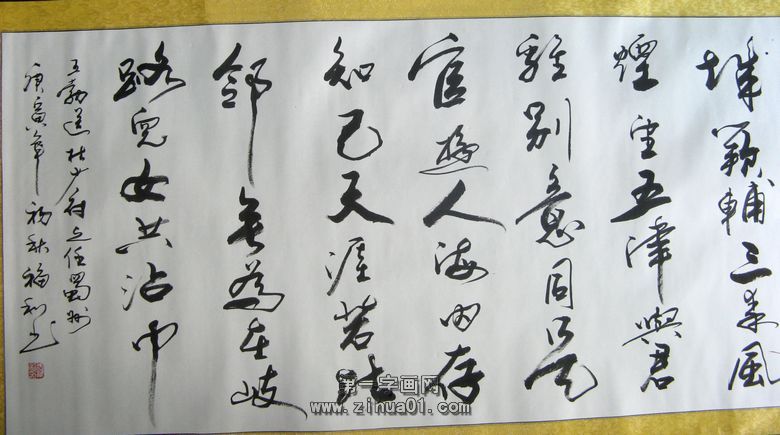 城闕輔三秦風
煙望五津與君
離別意同是
宦遊人海内存
知己天涯若比
鄰無為在岐
路兒女共沾巾
王勃送杜少府之任蜀州
庚寅年初秋福利书
第一字画网
www.zinua01.com